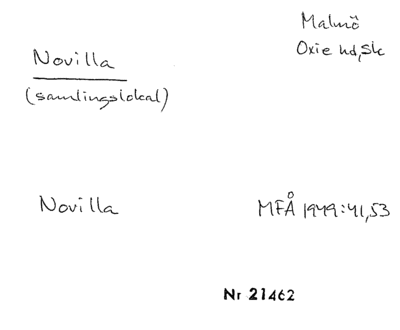 Malmö
Oxie hd, Sk
Novilla
(samlingslokal)
Novilla MFÅ 1949:41,53
Nr 21462